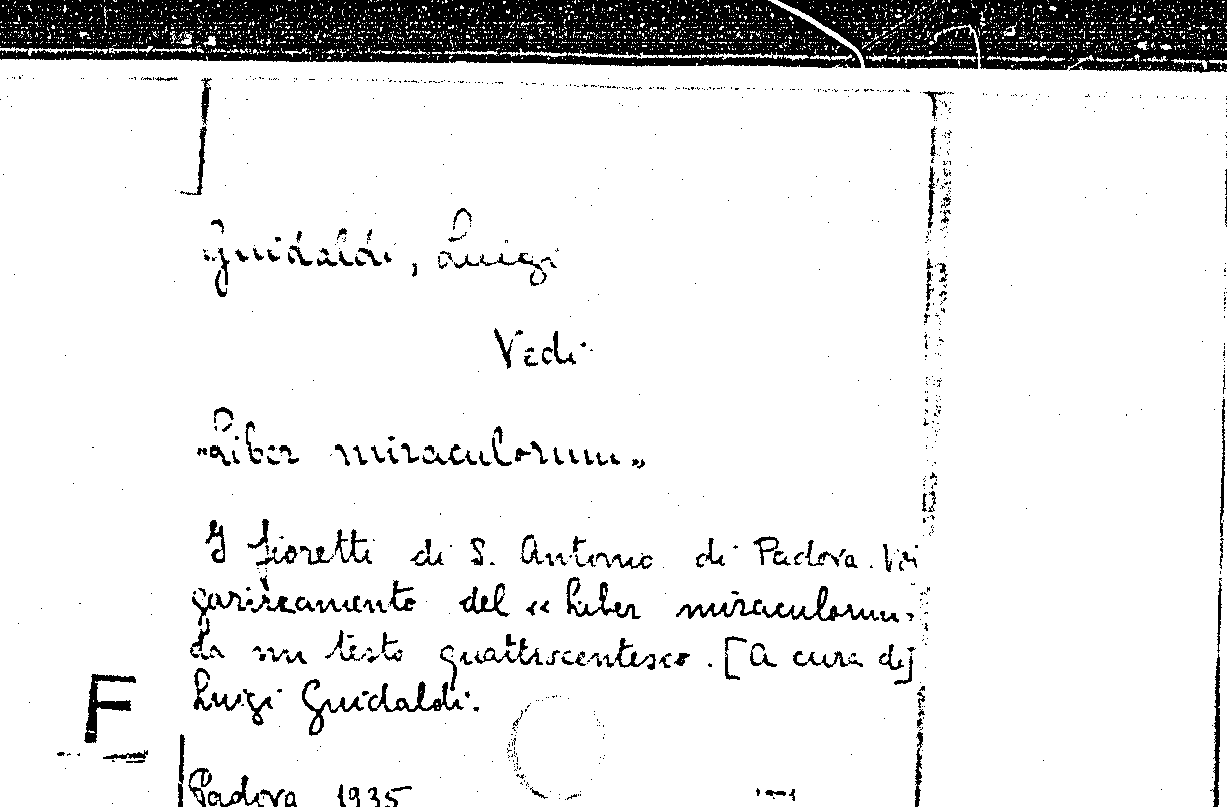 Guidaldi, Luigi
Vedi
"Liber miraculorum"
I fioretti di S. Antonio di Padova.
garizzamento del « Liber miraculorum»
da un testo quattrocentesco. [A cura di]
Luigi Guidaldi.
F
Padova 1935